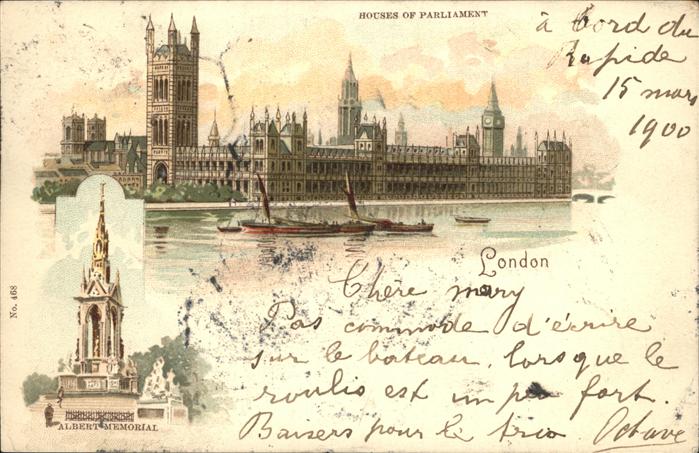 HOUSES OF PARLIAMENT
à bord du
Rapide
15 mars
1900
London
No. 468
ALBERT MEMORIAL
Chère mary
Pas commode d'écrire
sur le bateau, lorsque le
roulis est un peu fort.
Baisers pour le trio. Octave